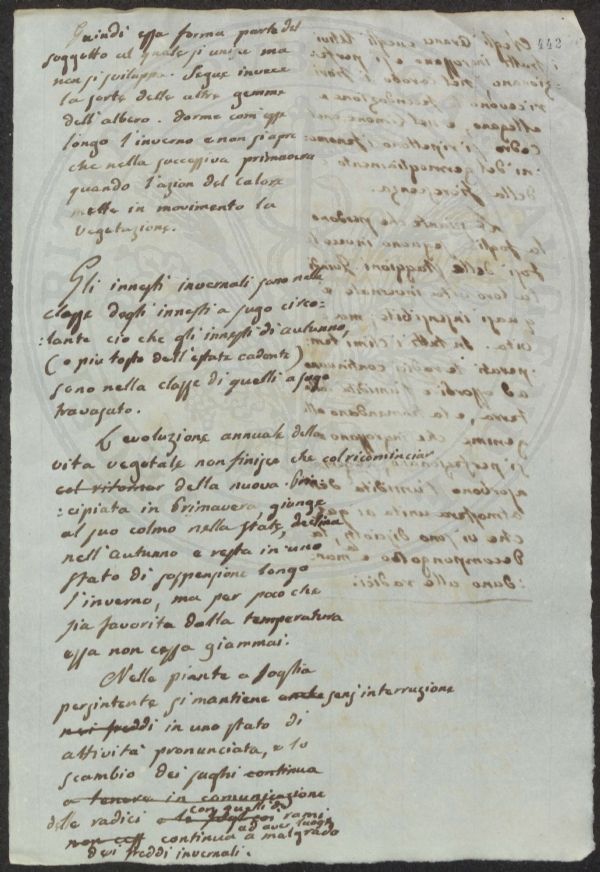 442
Quindi essa forma parte del
soggetto al quale si unisce ma
non si sviluppa. Segue invece
la sorte delle altre gemme
dell'albero. dorme com'esse
longo l'inverno e non si apre
che nella successiva primavera
quando l'azion del calore
mette in movimento la
vegetazione.
Gli innesti invernali sono nella
classe degli innesti a sugo circo=
:lante ciò che gli innesti di autunno
(o più tosto dell'estate cadente)
sono nella classe di quelli a sugo
travasato.
L'evoluzione annuale della
vita vegetale non finisce che col ricominciar
col ritornar della nuova. Prin
:cipiata in Primavera, giunge
al suo colmo nella state, declina
nell'autunno e resta in uno
stato di sospensione longo
l'inverno, ma per poco che
sia favorita dalla temperatura
essa non cessa giammai.
Nelle piante a foglia
persistente si mantiene anche senz'interruzione
nei freddi in uno stato di
attività pronunciata, e lo
scambio dei sughi continua
a tenere in comunicazione
delle radici con quelli dei rami
non cess continua ad aver luogo a malgrado
dei freddi invernali.